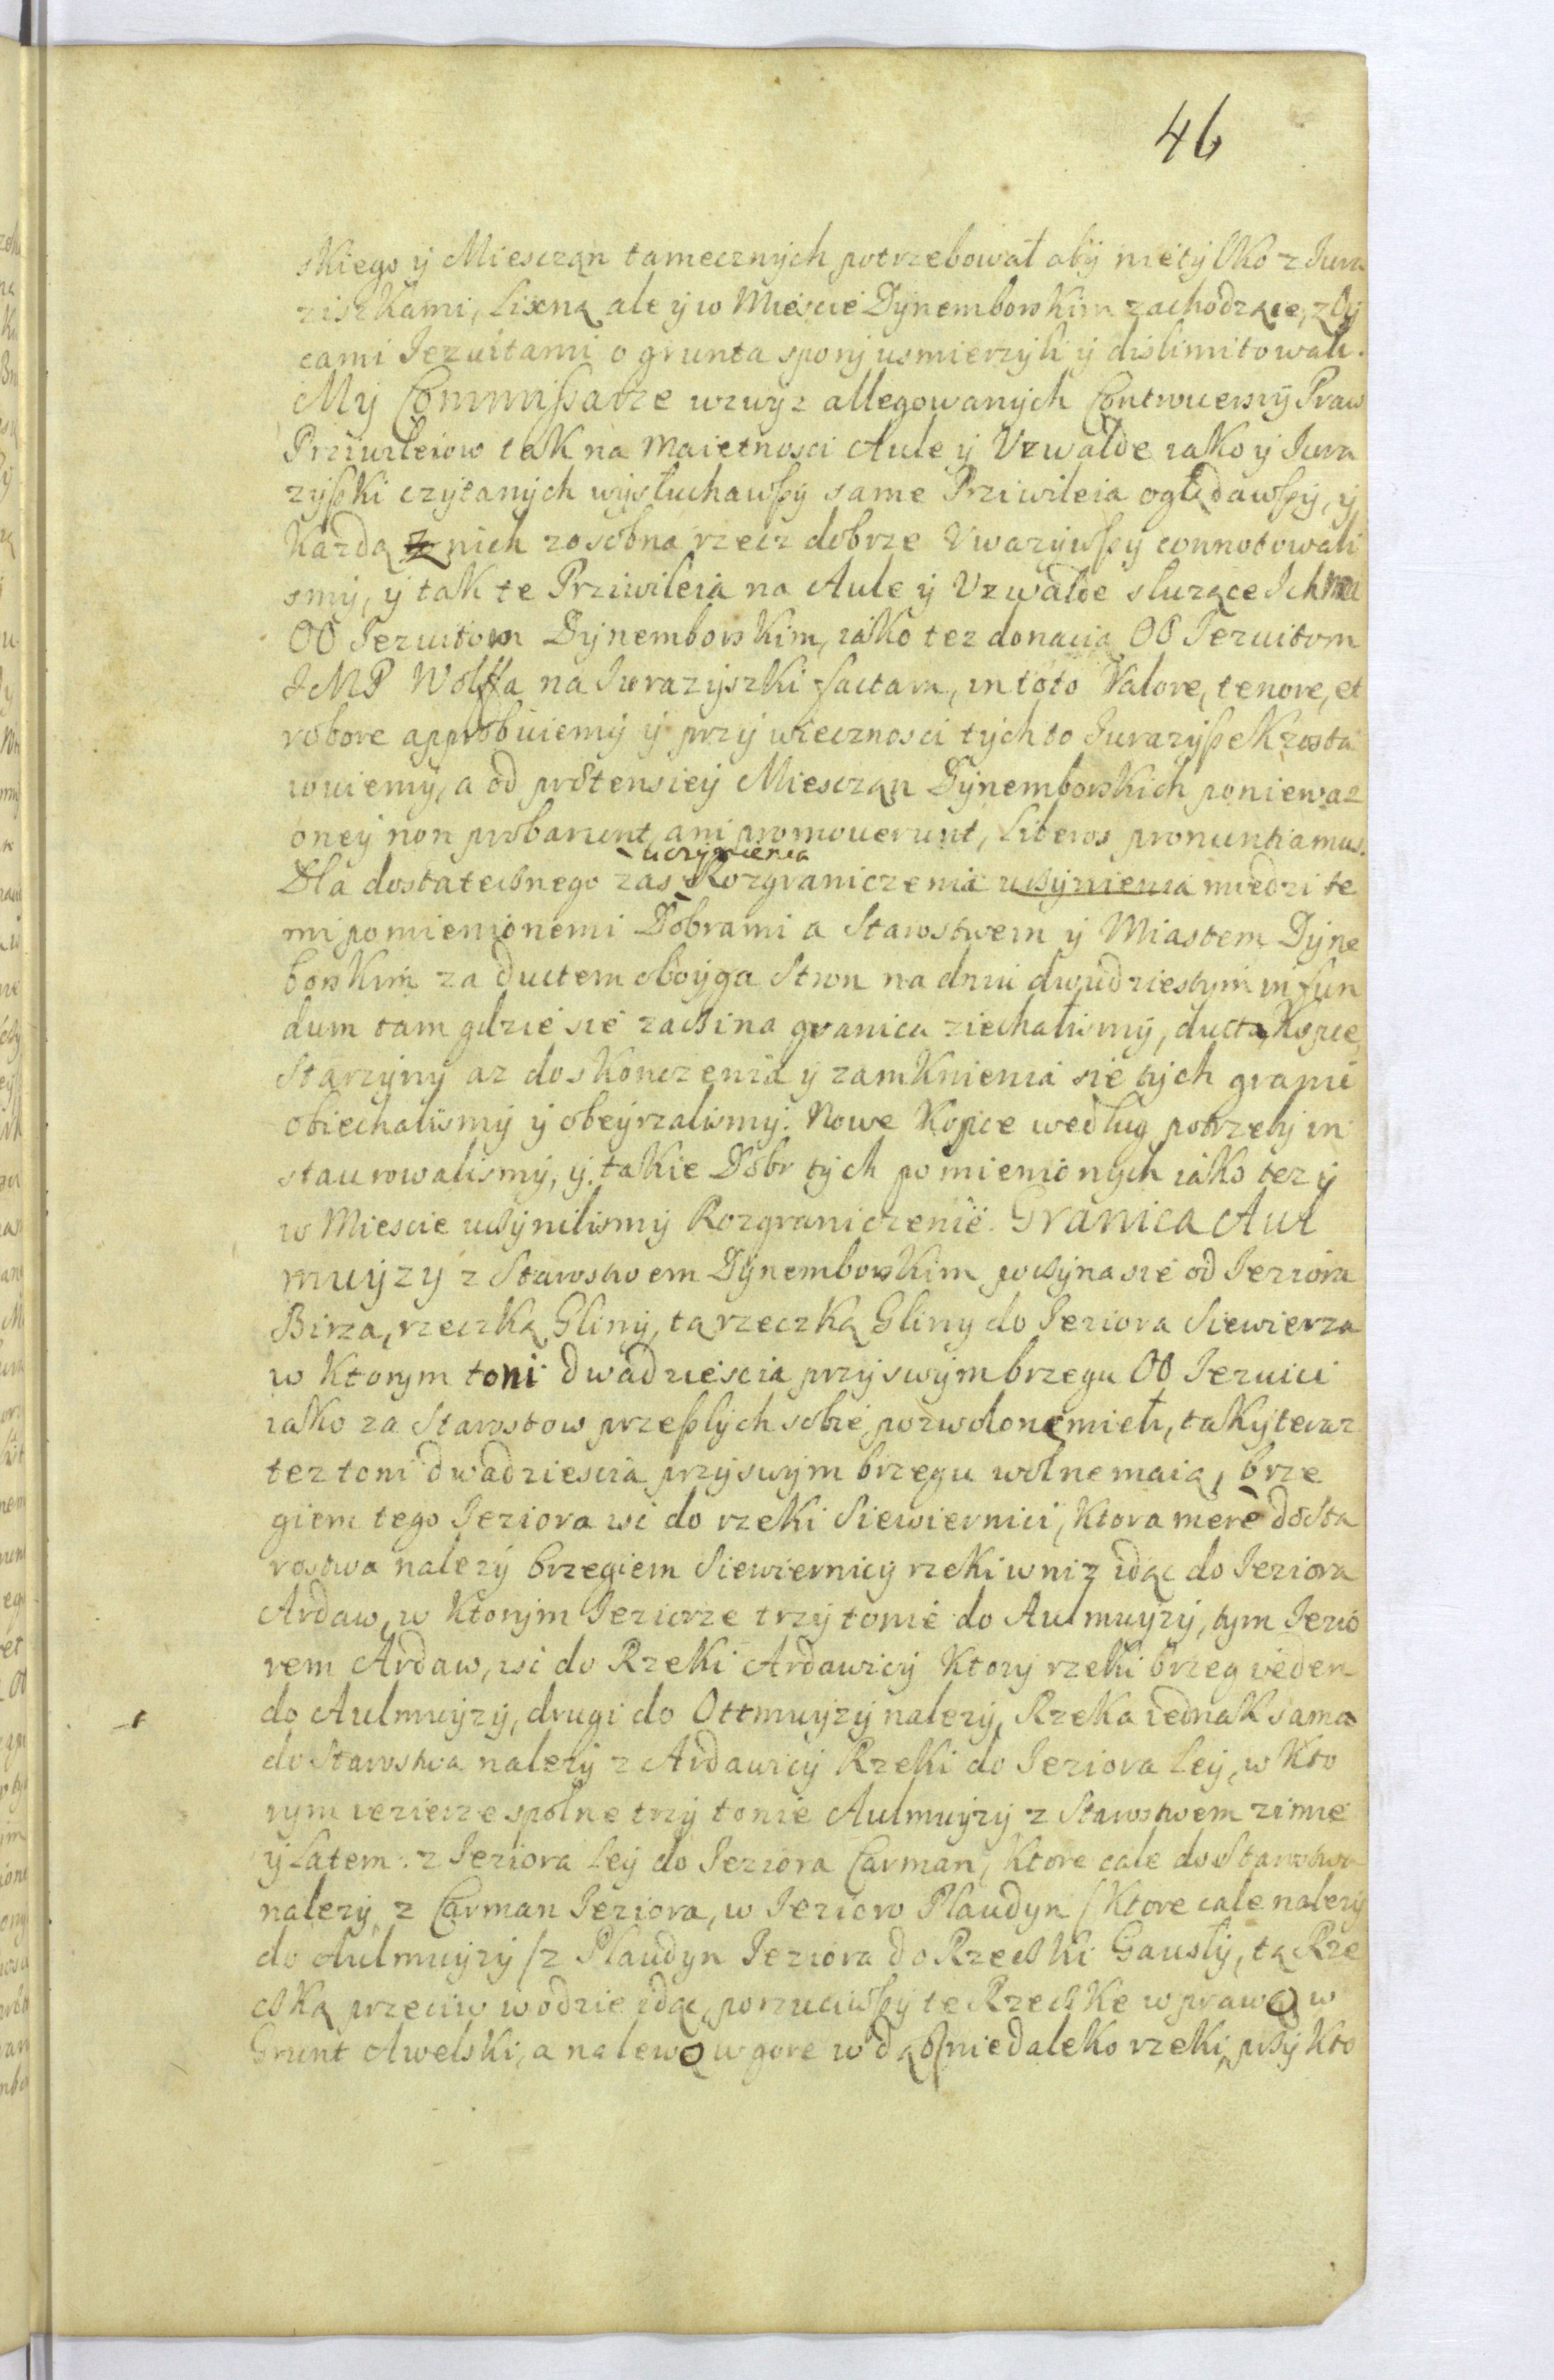 46
skiego ÿ Miesczan tamecznÿch potrzebował abÿ nietÿlko z Jura
ziszkami, Lixną ale ÿ w Mieście Dÿnemborskim zachodzące, z Oÿ
cami Jezuitami o grunta sporÿ usmierzÿli ÿ dislimitowali.
Mÿ Commißarze wzwÿz allegowanÿch Controuersÿÿ Praw
Priwileiow tak na maietnosci Aule ÿ Vzwalde iako ÿ Jura
zÿßki czÿtanÿch wÿsłuchawßÿ same Priwileia oglądawßÿ, ÿ
Kazdą z nich zosobna rzecz dobrze Vwazÿwßÿ connotowali
smÿ, ÿ tak te Priwileia na Aule ÿ Vzwalde sluzące Ichm
OO Jezuitom Dÿnemborskim, iako tez donacią OO Jezuitom
JMP Wolffa na Jurazÿszki factam, in toto Valore, tenore, et
robore approbuiemÿ ÿ przÿ wiecznosci tÿchto Jurazÿßek zosta
wuiemÿ, a od prætensieÿ Miesczan Dÿnemborskich poniewaz
oneÿ non probarunt, ani promouerunt, liberos pronuntiamus.
uczÿnienia
Dla dostatecznego zas Rozgraniczenia uczÿnienia miedzi te
mi pomienionemi Dobrami a Starostwem ÿ Miastem Dÿne
borskim za ductem oboÿga Stron na dniu dwudziestÿm in fun
dum tam gdzie sie zaczina granica ziechalismÿ, ducta, Kopce,
Starzÿnÿ az doskonczenia ÿ zamknienia sie tÿch granic
obiechalismÿ ÿ obeÿrzalismÿ. Nowe Kopce według potrzebÿ in
staurowalismÿ, ÿ takie Dobr tÿch pomienionÿch iako tez ÿ
w Miescie uczÿnilismÿ Rozgraniczenie. Granica Aul
muÿzÿ z Starostwem Dÿnemborskim poczÿna sie od Jeziora
Birza, rzeczką Glinÿ, tą rzeczką Glinÿ do Jeziora Siewierza
w Ktorym toni dwadziescia przÿ swÿm brzegu OO Jezuici
iako za Starostow przeßlÿch sobie pozwolone mieli, tak ÿ teraz
tez toni dwadziescia przÿ swÿm brzegu wolne maią, brze
giem tego Jeziora isc do rzeki Siewiernici, Ktora mere do Sta
rostwa nalezÿ brzegiem Siewiernicÿ rzeki wniz idąc do Jeziora
Ardaw, w Ktorÿm Jeziorze trzÿ tonie do Aulmuÿzÿ, tÿm Jezio
rem Ardaw, isc do Rzeki Ardawicÿ Ktorÿ rzeki brzeg ieden
do Aulmuÿzÿ, drugi do Ottmuÿzÿ nalezÿ, Rzeka iednak sama
do Starostwa nalezÿ z Ardawicÿ Rzeki do Jeziora Leÿ, w Kto
rym ieziecze spolne trzÿ tonie Aulmuÿzÿ z Starostwem zimie
ÿ Latem: z Jeziora Leÿ do Jeziora Carman, Ktore cale do Starostwa
nalezÿ, z Carman Jeziora, w Jezioro Plaudyn / Ktore cale nalezÿ
do Aulmuÿzÿ / z Plaudyn Jeziora do Rzeczki Gaustÿ, tą Rze
czką przeciw wodzie idąc, porzuciwßÿ te Rzeczke w prawo w
Grunt Awelski, a na lewo w gore w dąb niedaleko rzeki, przÿ kto